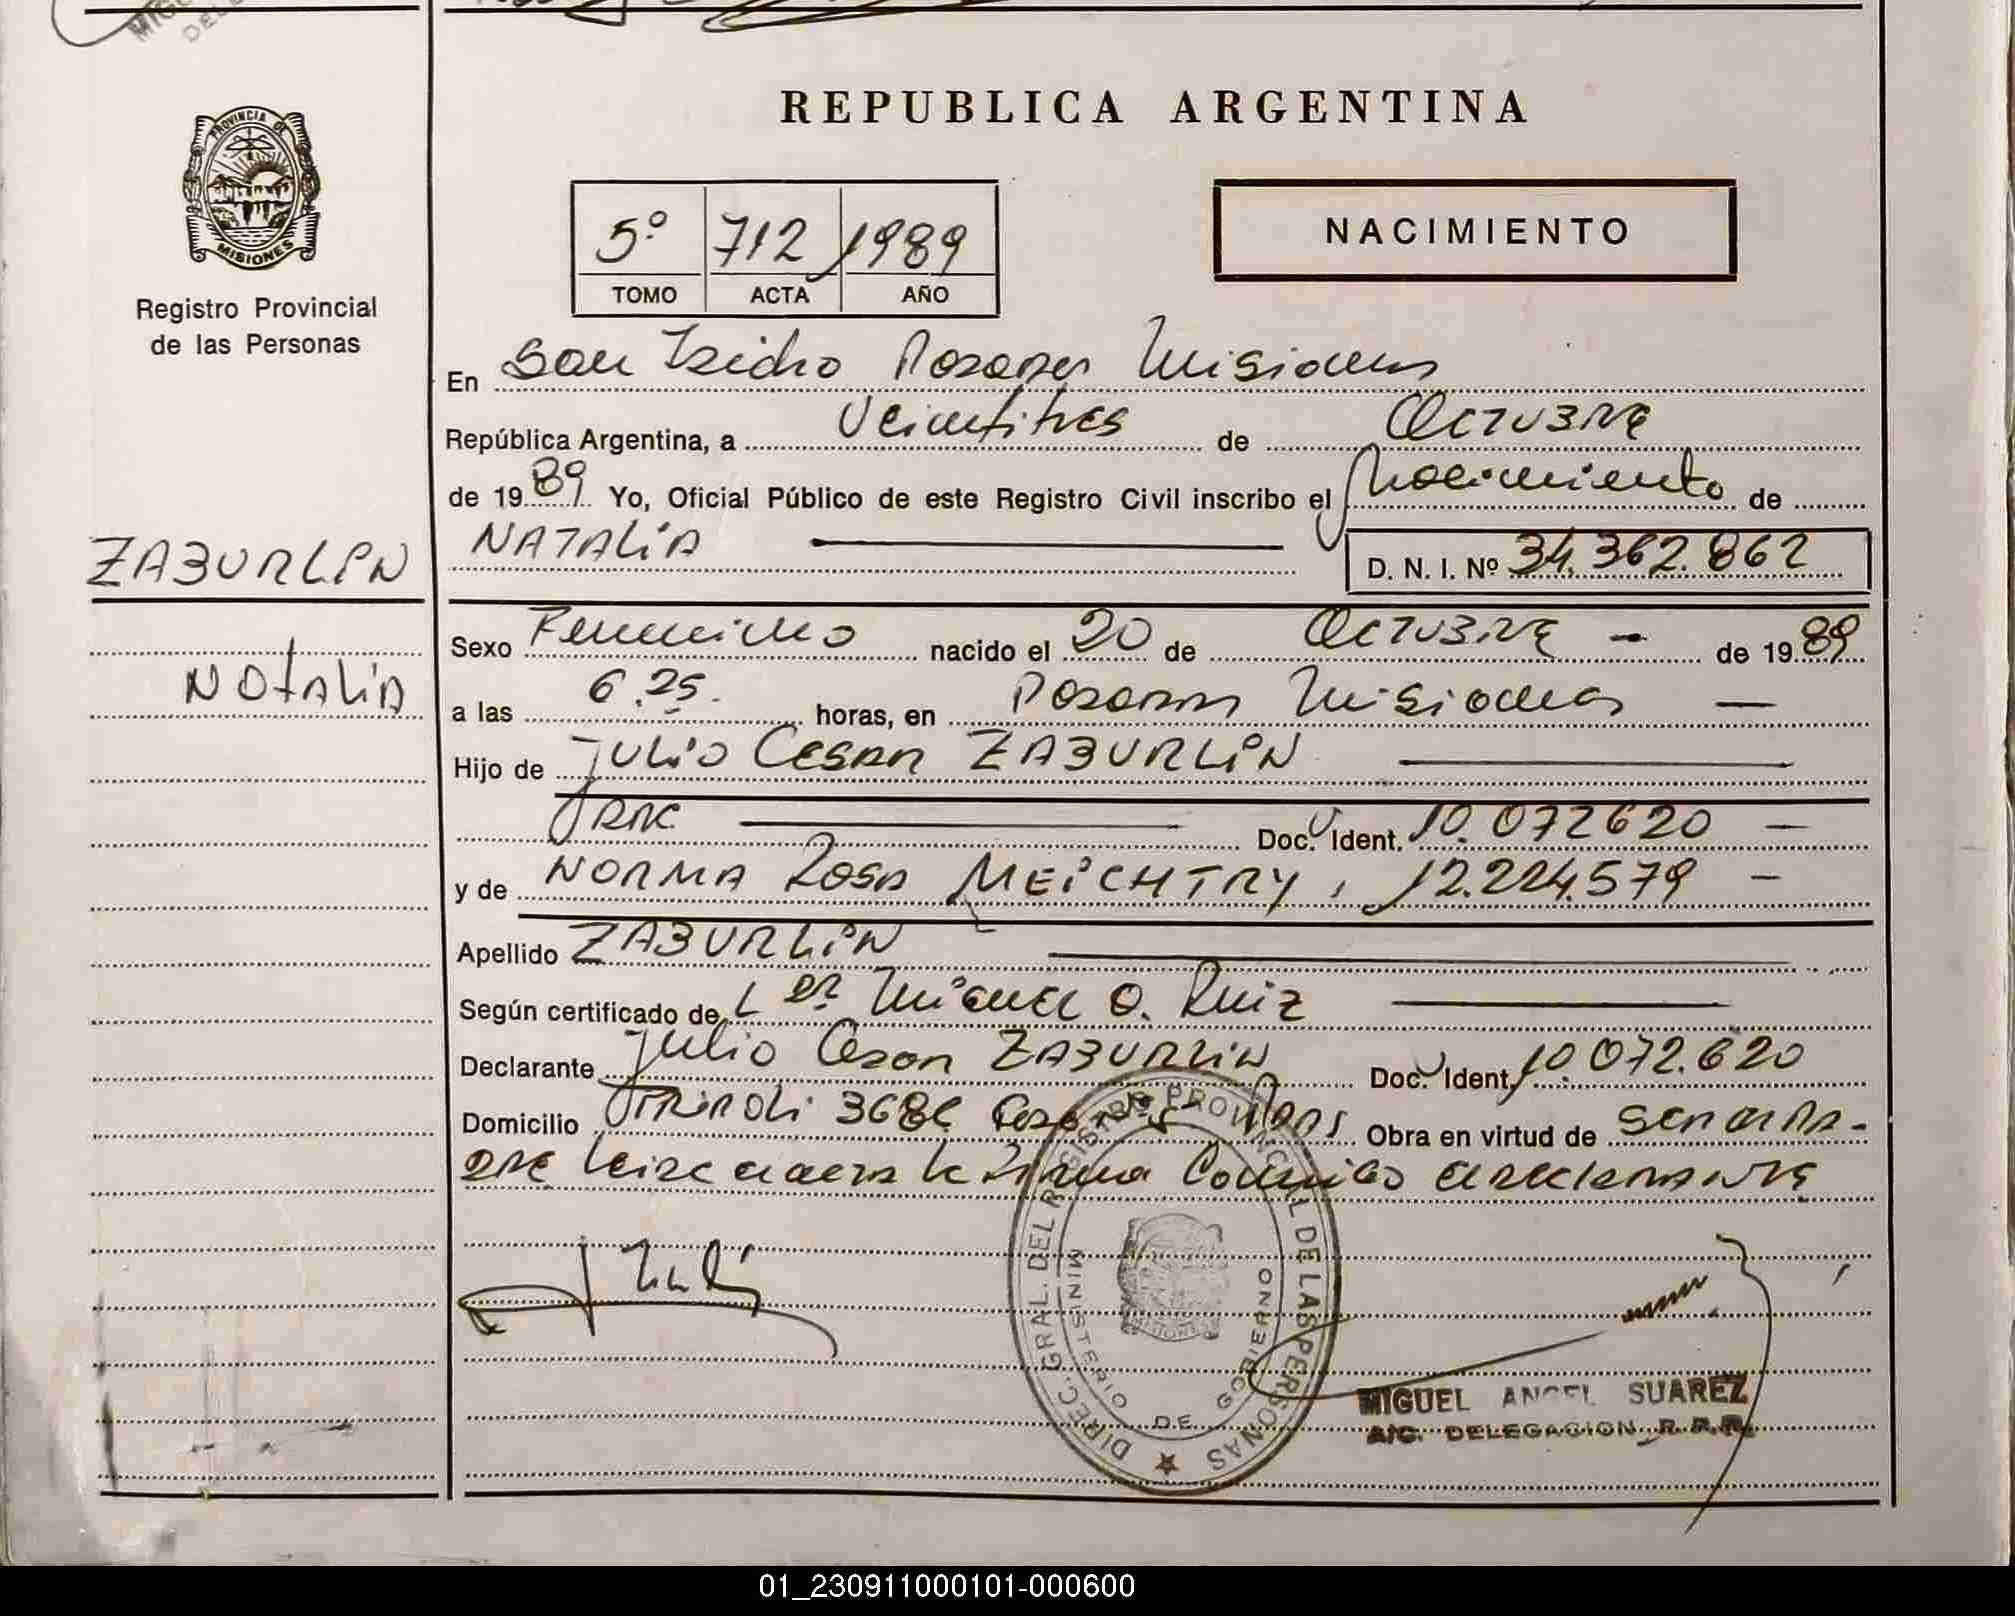 REPUBLICA ARGENTINA
PROVINCIA DE
MISIONES
Registro Provincial
de las Personas
5º 712 1989
TOMO ACTA AÑO
NACIMIENTO
En San Isidro Posadas Misiones
República Argentina, a Veintitres de Octubre
de 1989 Yo, Oficial Público de este Registro Civil inscribo el Nacimiento de
ZABURLIN
NATALIA
D. N. I. Nº 34.362.862
Natalia
Sexo Femenino nacido el 20 de Octubre - de 1989
a las 6.25. horas, en Posadas Misiones —
Hijo de Julio Cesar ZABURLIN
Doc. Ident. 10.072620 —
y de NORMA Rosa MEICHTRY, 12.224.579 —
Apellido ZABURLIN
Según certificado de Miguel O. Ruiz
Declarante Julio Cesar ZABURLIN Doc. Ident. 10.072.620
Domicilio Obra en virtud de
DIREC. GRAL. DEL REGISTRO PROVINCIAL DE LAS PERSONAS
MINISTERIO DE GOBIERNO
MIGUEL ANGEL SUAREZ
A/C. DELEGACION R.P.P.
01_230911000101-000600